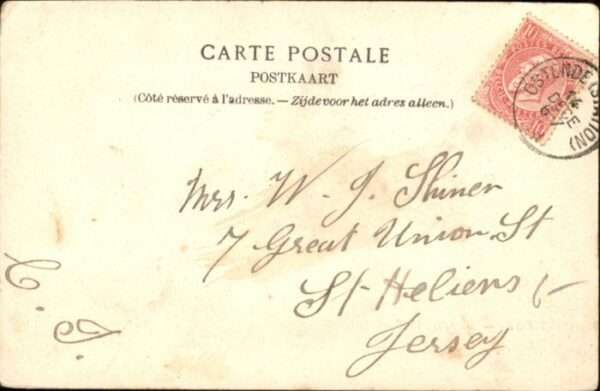 CARTE POSTALE
POSTKAART
(Côté réservé à l'adresse. — Zijde voor het adres alleen.)
10 10
POSTES
10
OSTENDE (STATION)
14
DECE
Mrs. W. J. Shiner
7 Great Union St
St Heliers
Jersey